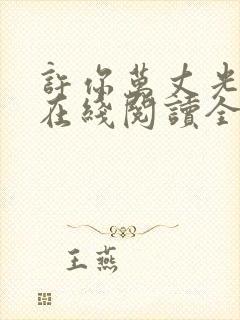 許你萬丈光
在綫閱讀全
王燕